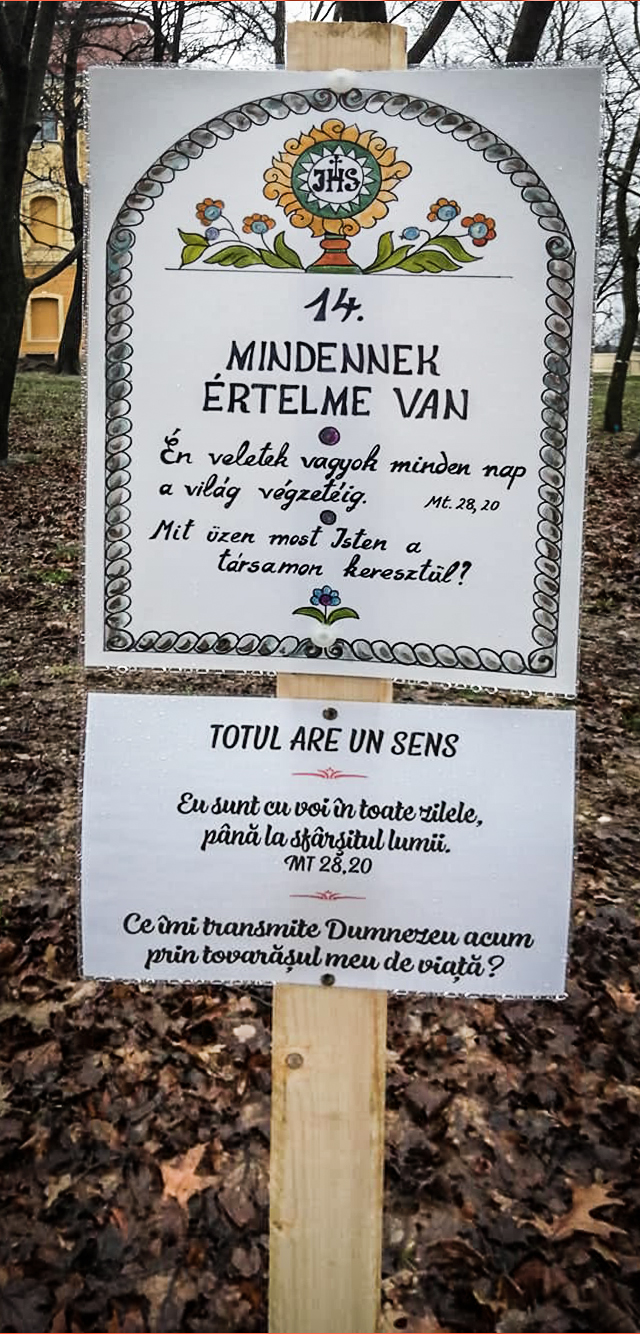 JHS
14.
MINDENNEK
ÉRTELME VAN
Én veletek vagyok minden nap
a világ végzetéig. Mt. 28, 20
Mit üzen most Isten a
társamon keresztül?
TOTUL ARE UN SENS
Eu sunt cu voi în toate zilele,
până la sfârşitul lumii.
MT 28,20
Ce îmi transmite Dumnezeu acum
prin tovarăşul meu de viaţă?